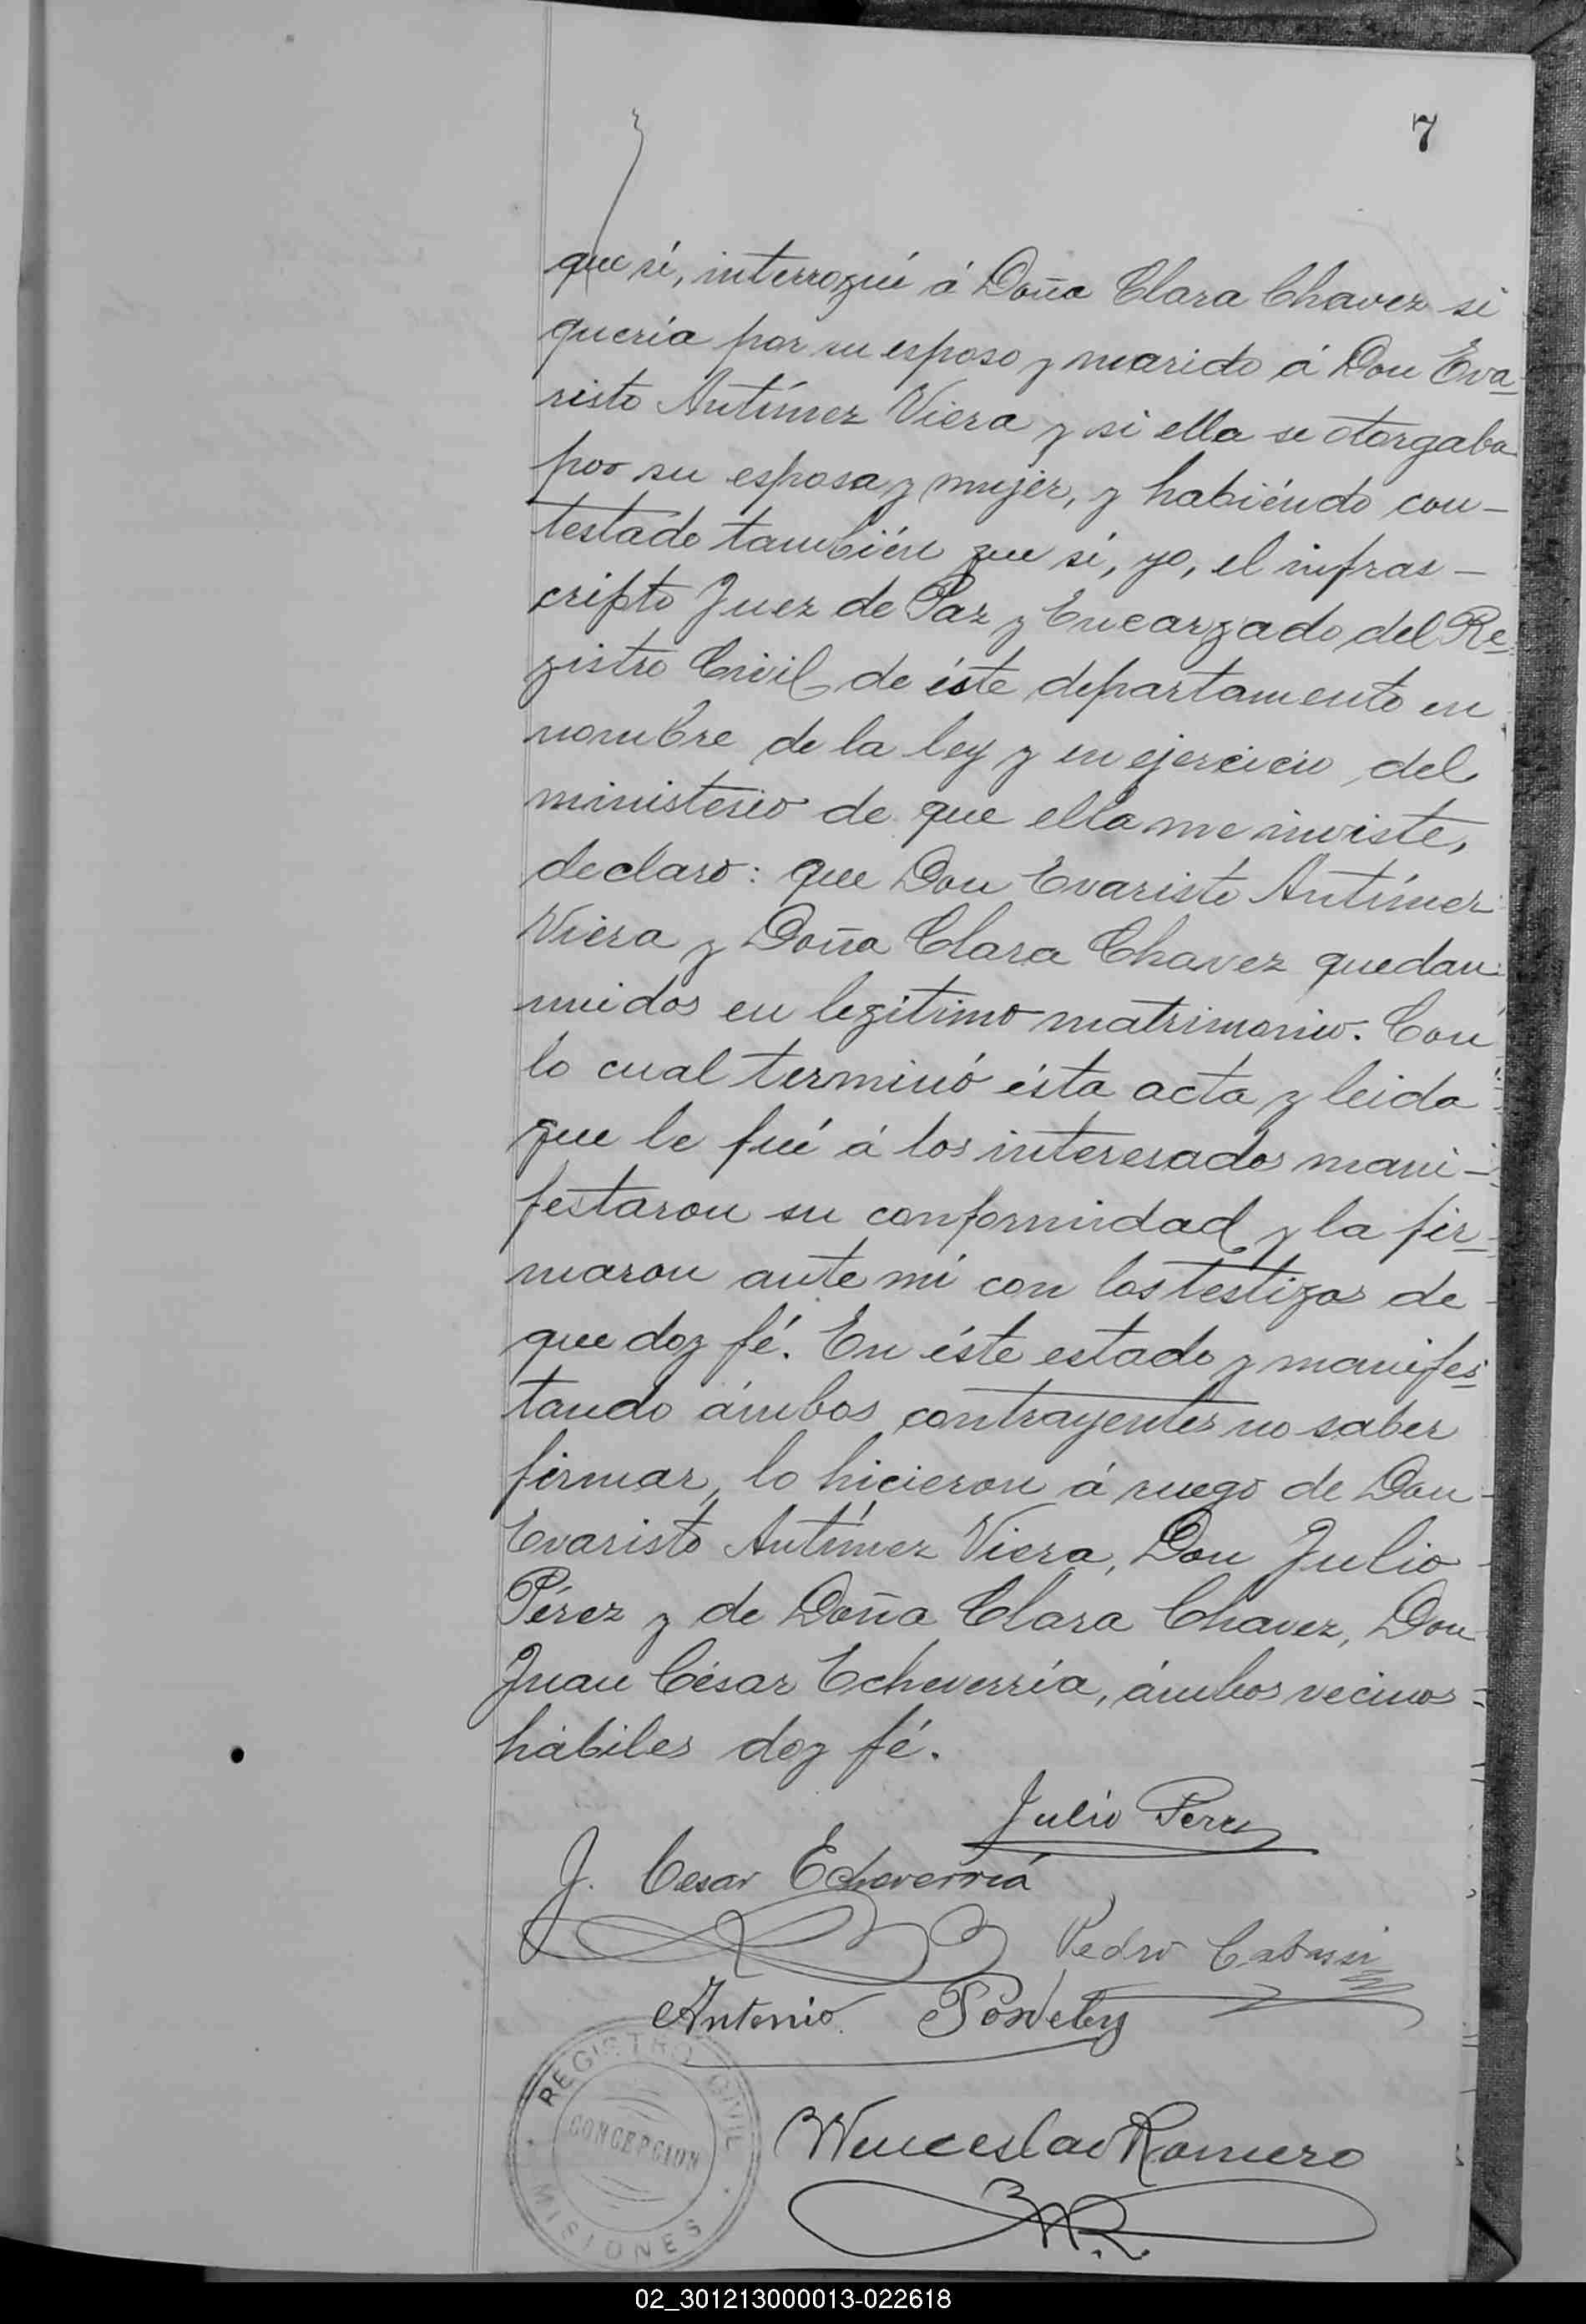 7
que sí, interrogué á Doña Clara Chavez si
quería por su esposo y marido á Don Eva-
risto Antímez Viera y si ella se otorgaba
por su esposa y mujer, y habiéndo con-
testado también que si, yo, el infras-
cripto Juez de Paz y Encargado del Re-
gistro Civil de éste departamento en
nombre de la ley y en ejercicio del
ministerio de que ella me inviste,
declaro: que Don Evaristo Antímez
Viera y Doña Clara Chavez quedan
unidos en legítimo matrimonio. Con
lo cual terminó ésta acta y leida
que le fué á los interesados mani-
festaron su conformidad y la fir-
maron ante mi con los testigos de
que doy fé. En éste estado y manifes-
tando ámbos contrayentes no saber
firmar, lo hicieron á ruego de Don
Evaristo Antímez Viera, Don Julio
Pérez y de Doña Clara Chavez, Don
Juan César Echeverría, ámbos vecinos
hábiles doy fé.
Julio Perez
J. Cesar Echeverriá
Pedro
Antonio
REGISTRO CIVIL
CONCEPCION
MISIONES
Wenceslao Romero
WR.
02_301213000013-022618